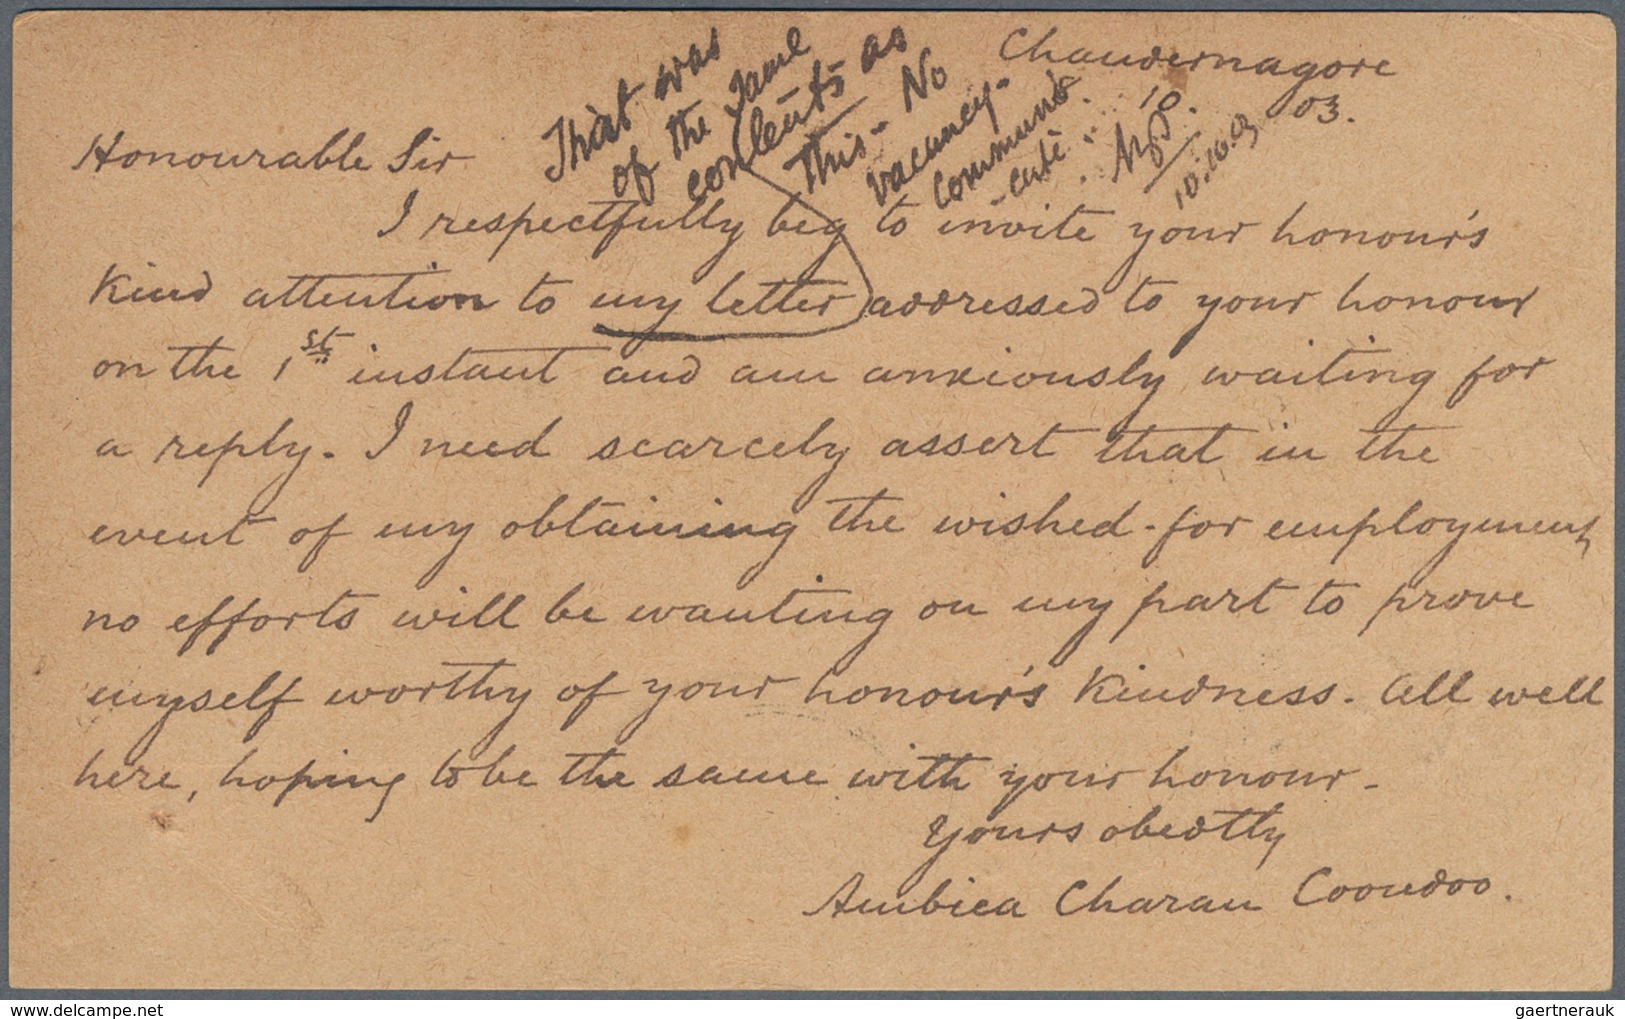 Chandernagore
10.
03.
That was
of the same
contents as
this - No
vacancy -
communi-
cate
10.10.03
Honourable Sir
I respectfully beg to invite your honour's
kind attention to my letter addressed to your honour
on the 1st instant and am anxiously waiting for
a reply. I need scarcely assert that in the
event of my obtaining the wished-for employment,
no efforts will be wanting on my part to prove
myself worthy of your honour's kindness. All well
here, hoping to be the same with your honour.
Yours obedtly
Ambica Charan Coondoo.
gaertnerauk